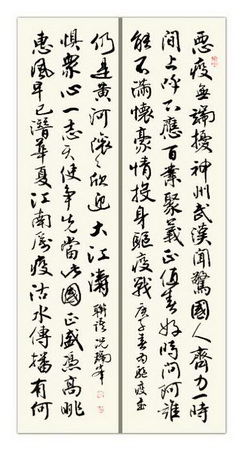 惡疫無端擾神州武漢聞驚國人齊力一時
間上呼下應百業聚義正值春好時问阿誰
能不滿懷豪情投身驅疫戰 庚子春為驅疫
惠風早已潛華夏江南疫沽水傳播有何
惧衆心一志天使争先當此國正盛憑高眺
仍是黄河滚滚欣迎大江濤 聯语